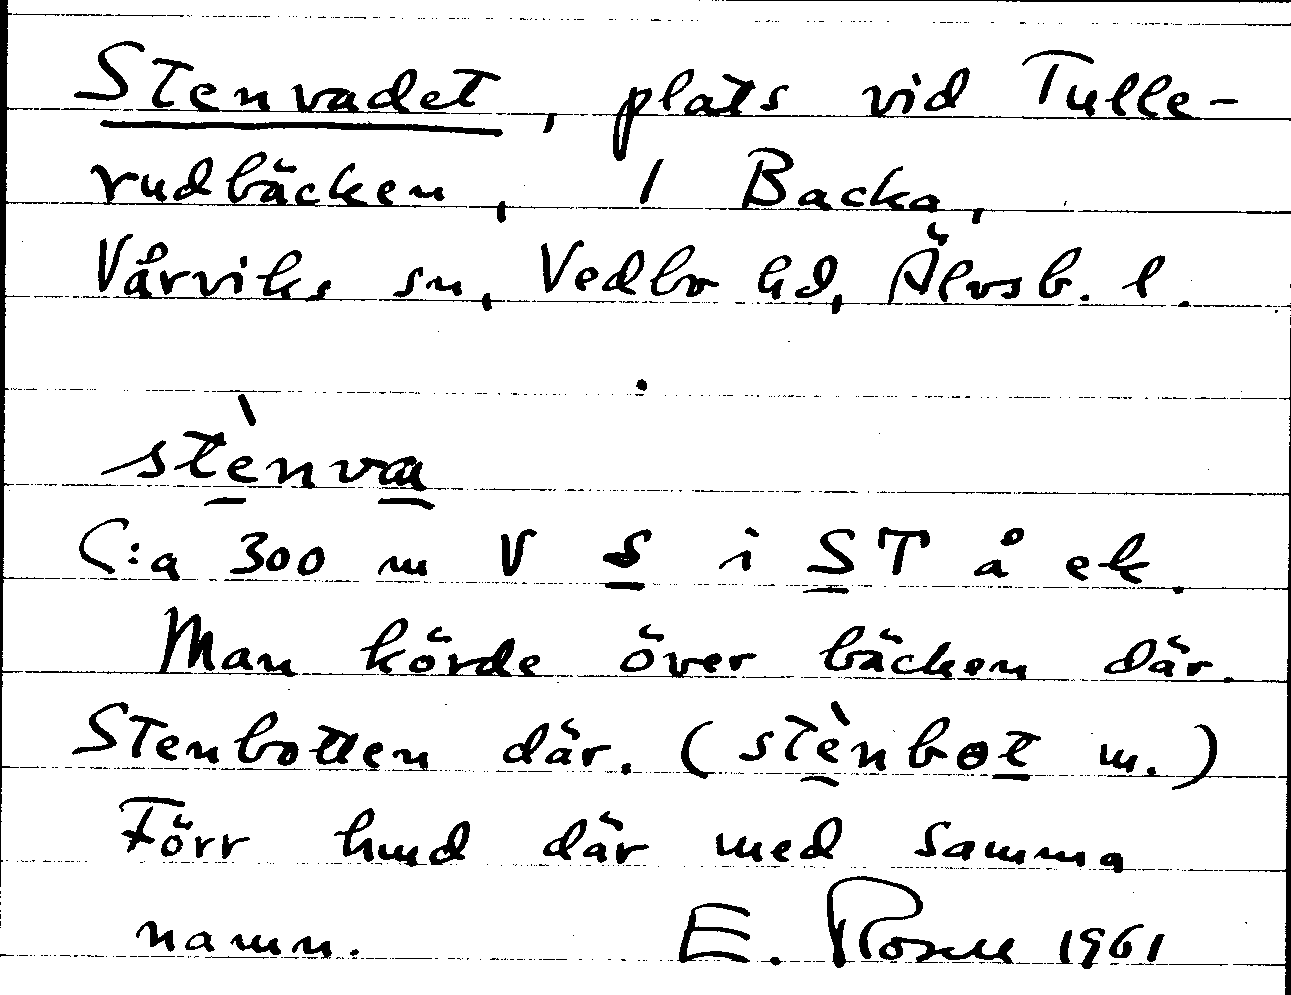 Stenvadet, plats vid Tulle-
rudbäcken, 1 Backa,
Vårviks sn, Vedbo hd, Älvsb. l.
stènva
C:a 300 m V S i ST å ek.
Man körde över bäcken där.
Stenbotten där. (stènbot m.)
Förr lund där med samma
namn. E. Rosell 1961